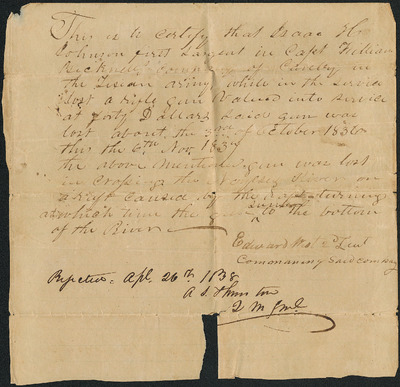 This is to certify that Isaac H
Johnson first Sargent in Capt William
company of Cavelry in
the Texian army while in the Service
lost a rifle gun valued into service
at forty Dollars said gun was
lost about the of October 1836
this the 6th Nov 1837
the above mentioned gun was lost
in Crossing the River on
a raft Caused by the raft turning
at which time the gun to the bottom
of the River
Edward Lieut
Commanding Said Company
Rejected Apl 26th 1838
A S Thurston
Q M Genl